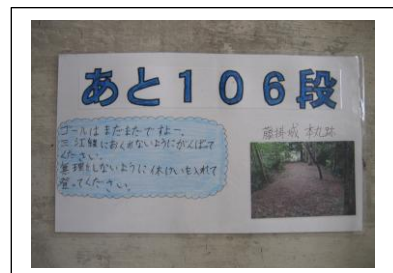 あと106段
ゴールはまだまだですよー。
三江線におくれないようにがんばって
ください。
無理をしないように休けいを入れて
登ってください。
藤掛城 本丸跡